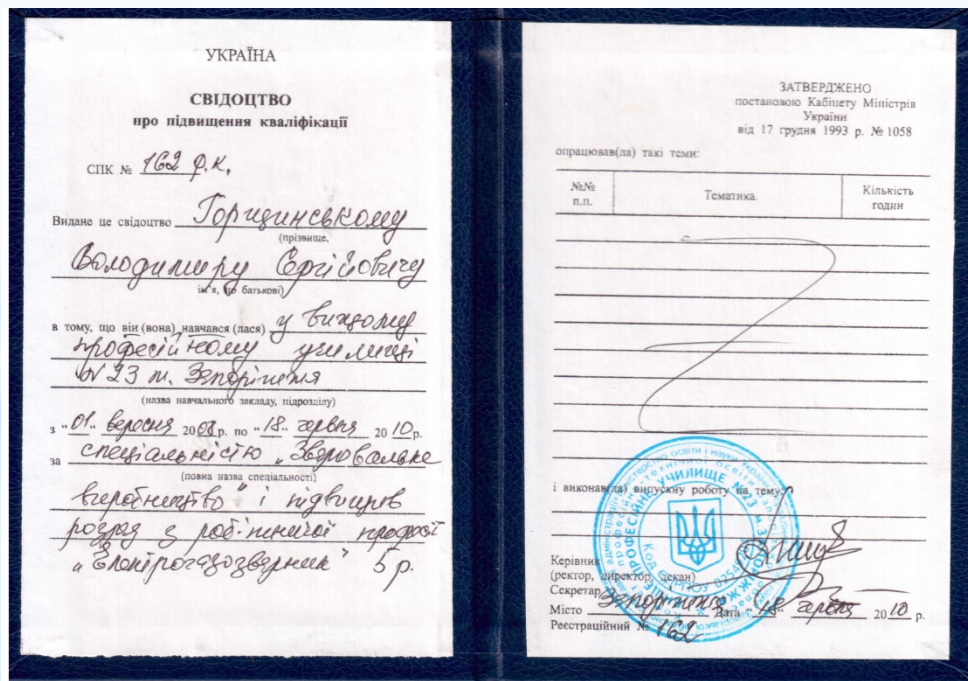 УКРАЇНА
СВІДОЦТВО
про підвищення кваліфікації
СПК № 162 ф.к.
Видане це свідоцтво Горщинському
(прізвище,
Володимиру Сергійовичу
ім'я, по батькові)
в тому, що він (вона) навчався (лася) у вищому
професійному училищі
№ 23 м. Запоріжжя
(назва навчального закладу, підрозділу)
з "01" вересня 2008 р. по "18" червня 2010 р.
за спеціальністю „Зварювальне
(повна назва спеціальності)
виробництво" і підвищив
розряд з робітничої професії
„Електрогазозварник" 5 р.
ЗАТВЕРДЖЕНО
постановою Кабінету Міністрів
України
від 17 грудня 1993 р. № 1058
опрацював(ла) такі теми:
№№ п.п. Тематика. Кількість годин
і виконав(ла) випускну роботу на тему:
Керівник
(ректор, директор, декан)
Секретар
Місто Запоріжжя Дата "18" червня 2010 р.
Реєстраційний № 162